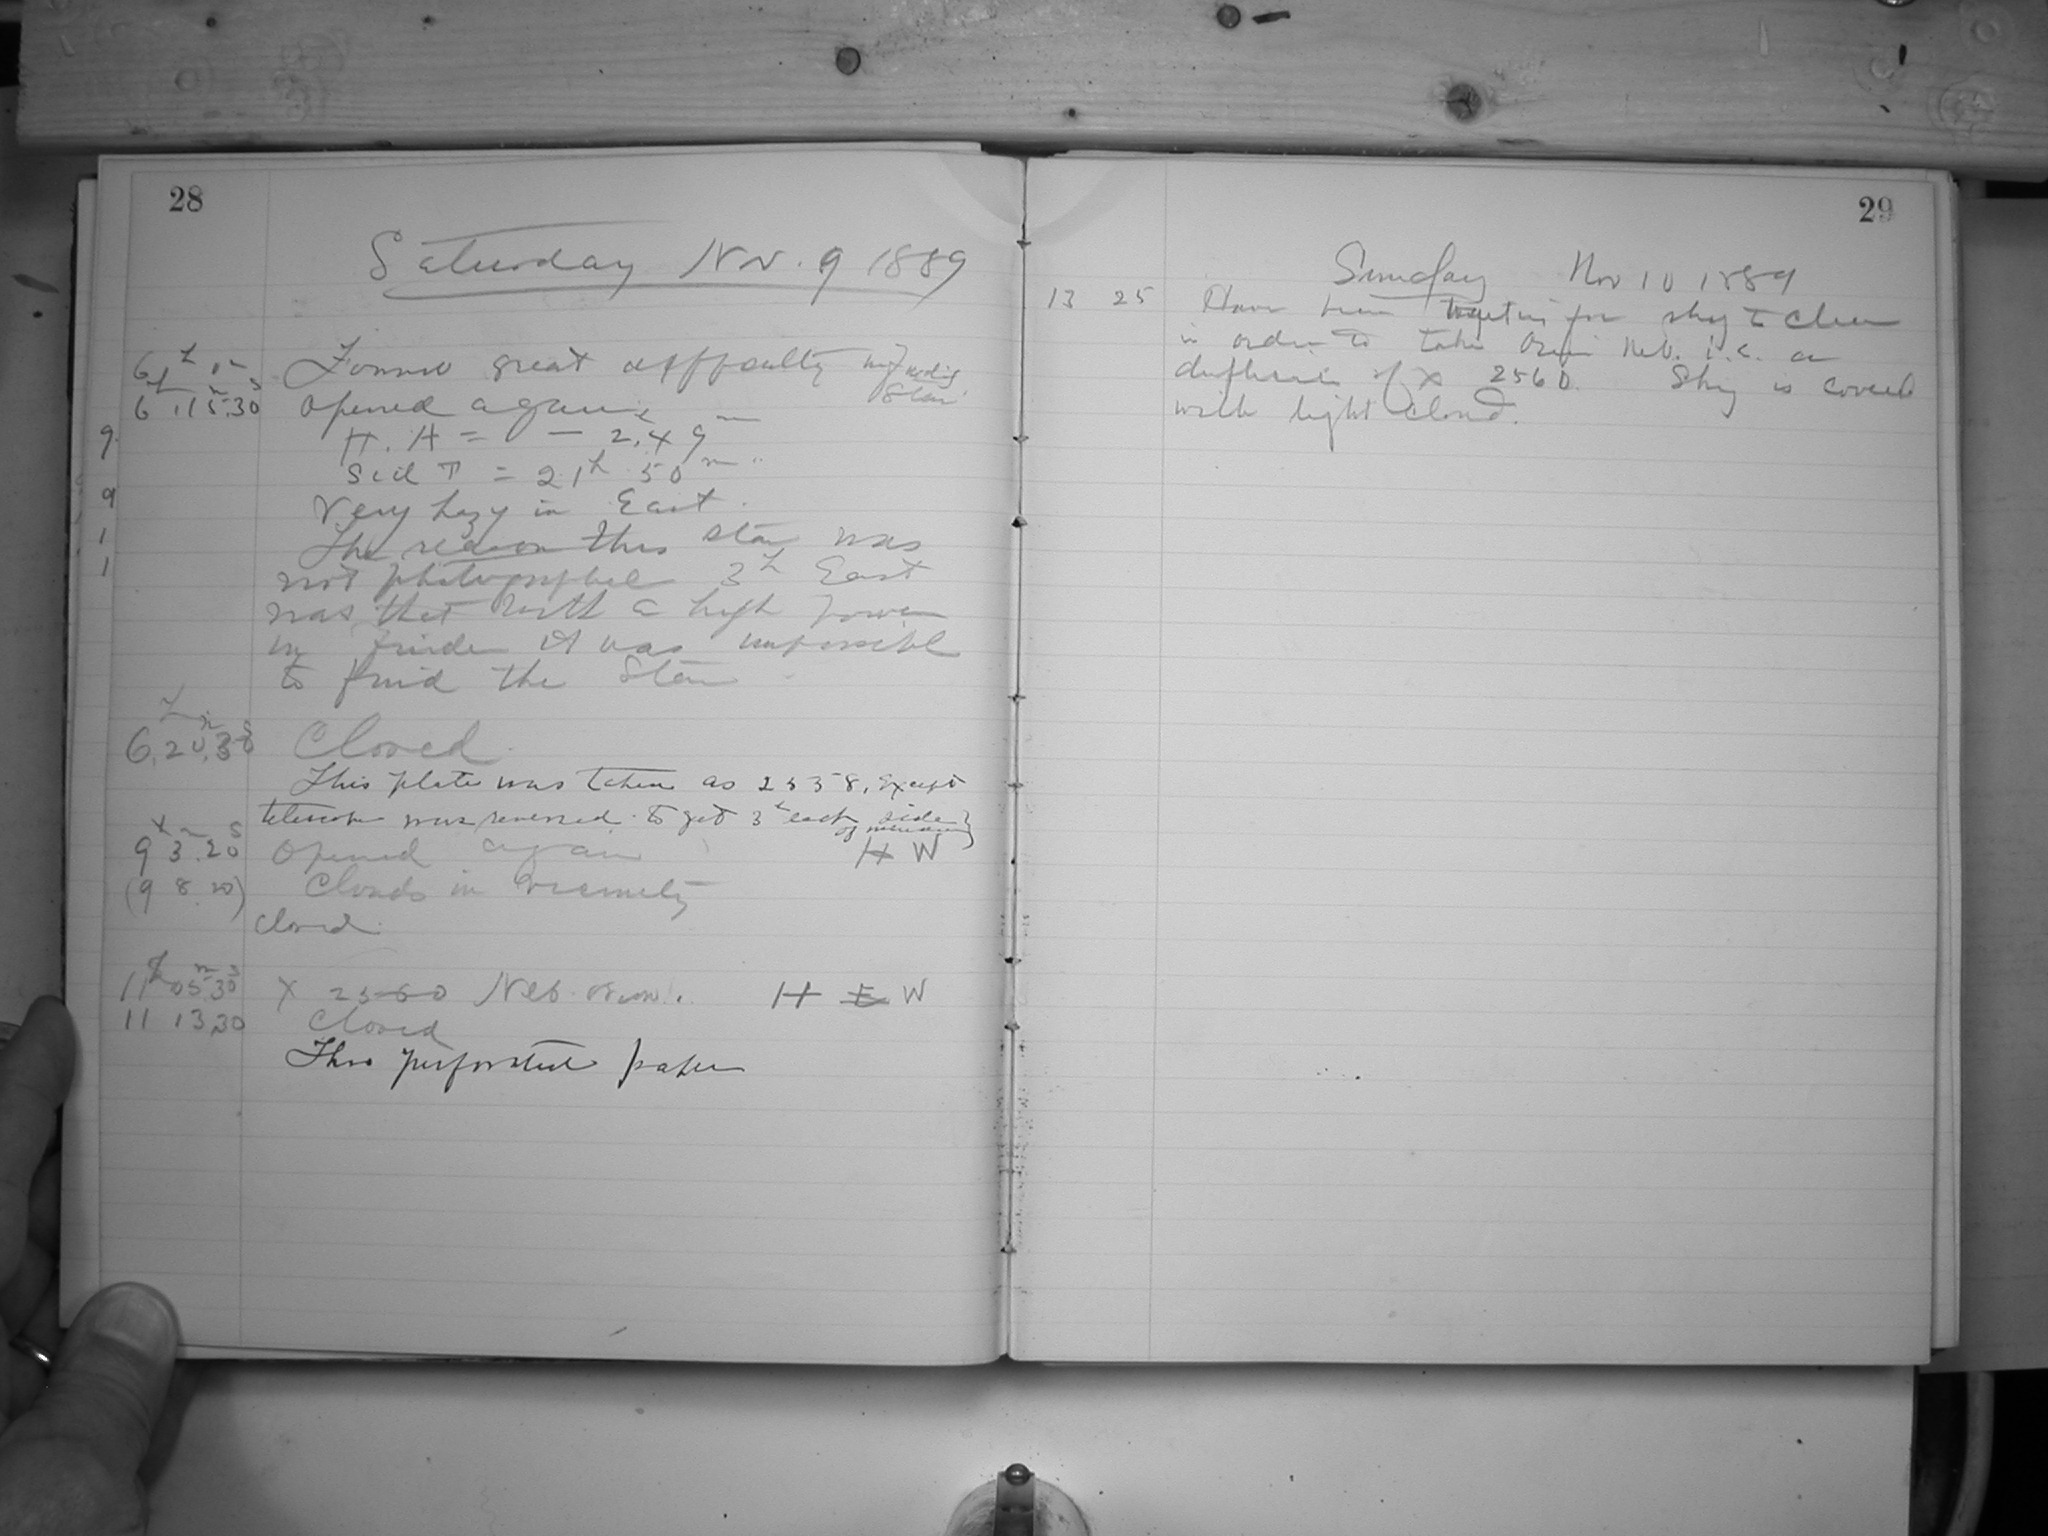 28
Saturday Nov. 9 1889
6h m Found great difficulty in finding Star
6h 15m 30s Opened again
H. A = - 2h 49m
Sid T = 21h 50m
Very hazy in East.
The reason this star was
not photographed 3h East
was that with a high power
in finder it was impossible
to find the Star
6h 20m 30s Closed
This plate was taken as 2558, except
telescope was reversed to get 3h each side of meridian
9h 3m 20s Opened again H W
(9 8 20) Clouds in vicinity
closed
11h 05m 30s X 2560 Neb. Orion. H E W
11 13 30 Closed
Thro perforated paper
9
9
1
1
29
Sunday Nov 10 1889
13 25 Have been waiting for sky to clear
in order to take Orion Neb. i.e. a
duplicate of X 2560. Sky is covered
with light cloud.